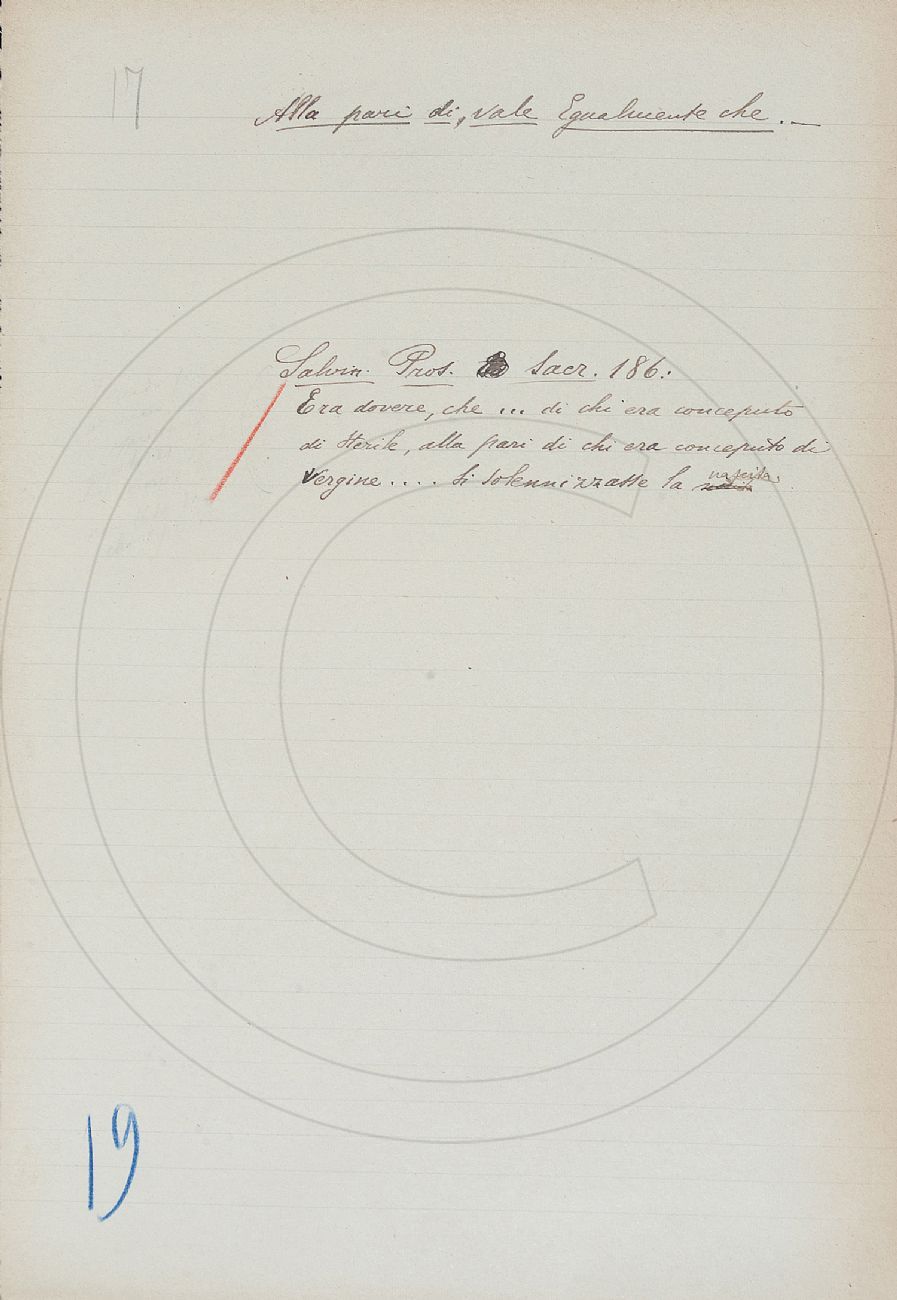 17
Alla pari di, vale Egualmente che. —
Salvin. Pros. Sacr. 186:
Era dovere, che ... di chi era conceputo
di sterile, alla pari di chi era conceputo di
Vergine .... si solennizzasse la nascita.
19